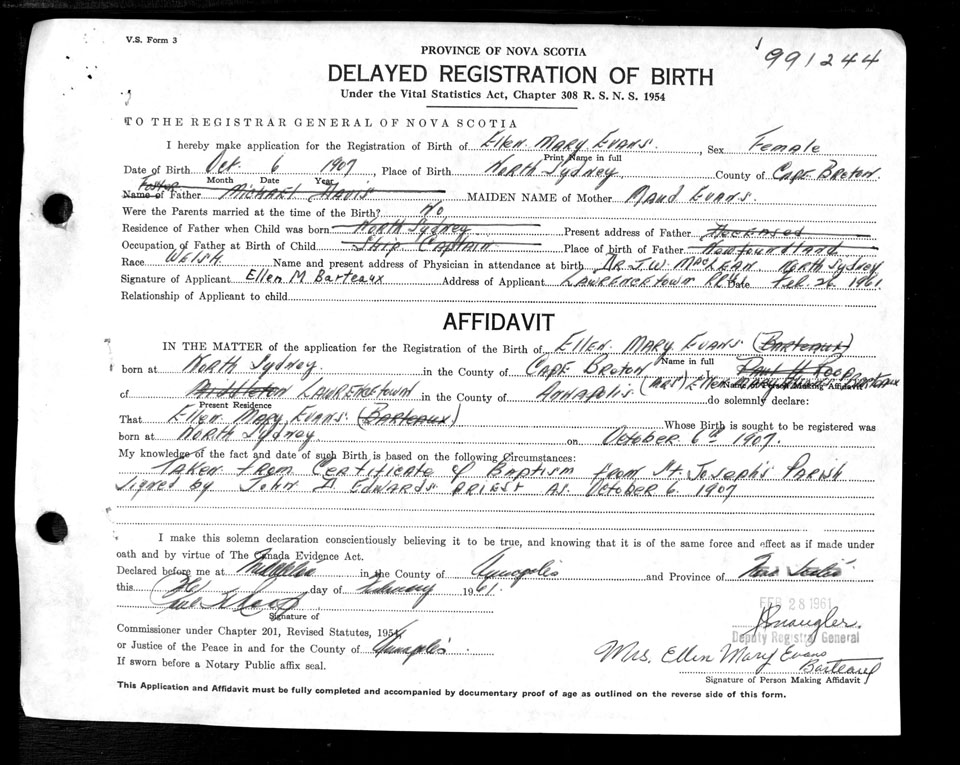 V.S. Form 3
991244
PROVINCE OF NOVA SCOTIA
DELAYED REGISTRATION OF BIRTH
Under the Vital Statistics Act, Chapter 308 R. S. N. S. 1954
TO THE REGISTRAR GENERAL OF NOVA SCOTIA
I hereby make application for the Registration of Birth of Ellen Mary Evans. Sex Female
Print Name in full
Date of Birth Oct. 6 1907 Place of Birth North Sydney County of Cape Breton
Month Date Year
Foster
Name of Father Michael Davis MAIDEN NAME of Mother Maud Evans.
Were the Parents married at the time of the Birth? No
Residence of Father when Child was born North Sydney Present address of Father Deceased
Occupation of Father at Birth of Child Ship Captain Place of birth of Father Newfoundland
Race Welsh Name and present address of Physician in attendance at birth Dr. J.W. MacLean North Sydney
Signature of Applicant Ellen M Barteaux Address of Applicant Lawrencetown Date Feb. 26 1961
Relationship of Applicant to child
AFFIDAVIT
IN THE MATTER of the application for the Registration of the Birth of Ellen Mary Evans (Barteaux)
Name in full
born at North Sydney in the County of Cape Breton
Name of Person Making Affidavit
of Middleton Lawrencetown in the County of Annapolis (Mrs) Ellen Mary Barteaux do solemnly declare:
Present Residence
That Ellen Mary Evans (Barteaux) Whose Birth is sought to be registered was
born at North Sydney on October 6th 1907.
My knowledge of the fact and date of such Birth is based on the following Circumstances:
Taken from Certificate of Baptism from St. Josephs Parish
signed by John Edwards Priest as October 6. 1907
I make this solemn declaration conscientiously believing it to be true, and knowing that it is of the same force and effect as if made under
oath and by virtue of The Canada Evidence Act.
Declared before me at Middleton in the County of Annapolis and Province of Nova Scotia
this day of February 1961.
FEB 28 1961
Signature of
Deputy Registrar General
Commissioner under Chapter 201, Revised Statutes, 1954,
or Justice of the Peace in and for the County of Annapolis
Mrs. Ellen Mary Evans
Barteaux
If sworn before a Notary Public affix seal.
Signature of Person Making Affidavit
This Application and Affidavit must be fully completed and accompanied by documentary proof of age as outlined on the reverse side of this form.